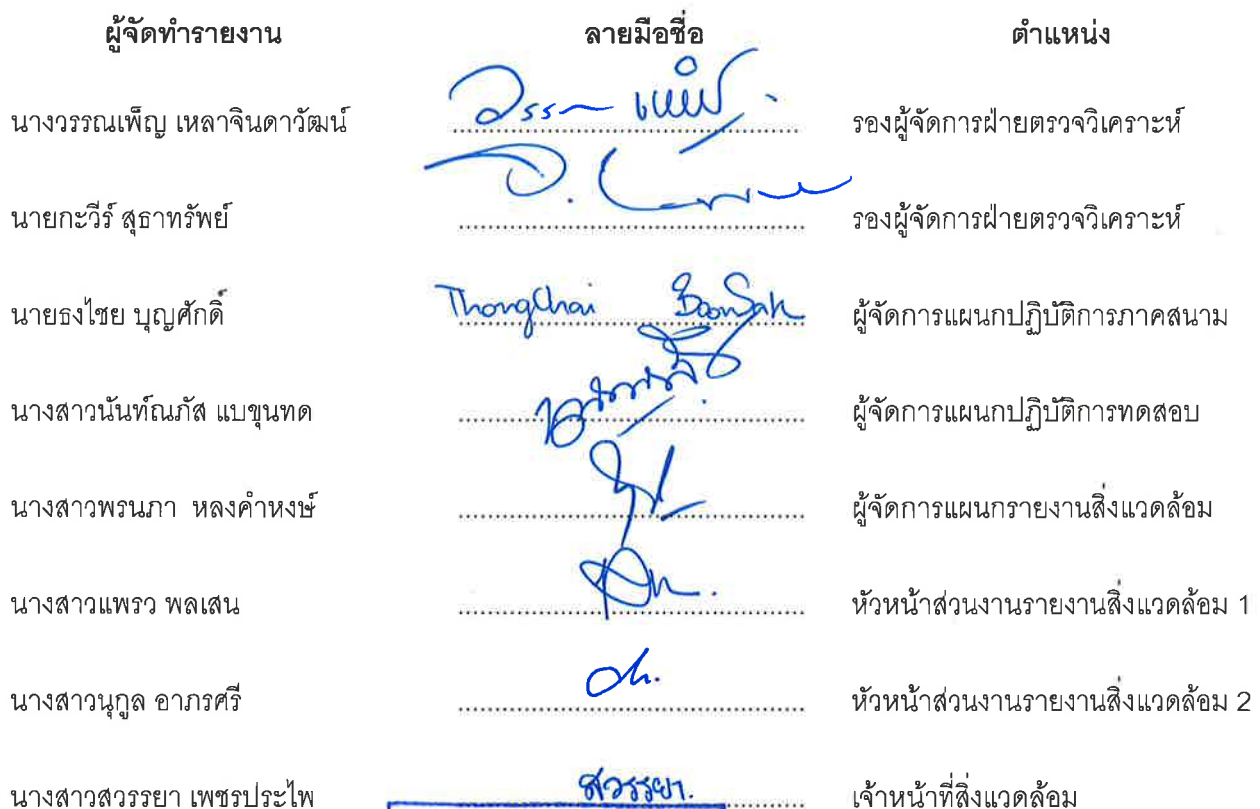 ผู้จัดทำรายงาน ลายมือชื่อ ตำแหน่ง
นางวรรณเพ็ญ เหลาจินดาวัฒน์ วรรณเพ็ญ รองผู้จัดการฝ่ายตรวจวิเคราะห์
นายกะวีร์ สุธาทรัพย์ รองผู้จัดการฝ่ายตรวจวิเคราะห์
นายธงไชย บุญศักดิ์ ThongChai BoonSak ผู้จัดการแผนกปฏิบัติการภาคสนาม
นางสาวนันท์ณภัส แบขุนทด ผู้จัดการแผนกปฏิบัติการทดสอบ
นางสาวพรนภา หลงคำหงษ์ ผู้จัดการแผนกรายงานสิ่งแวดล้อม
นางสาวแพรว พลเสน หัวหน้าส่วนงานรายงานสิ่งแวดล้อม 1
นางสาวนุกูล อาภรศรี หัวหน้าส่วนงานรายงานสิ่งแวดล้อม 2
นางสาวสวรรยา เพชรประไพ สวรรยา. เจ้าหน้าที่สิ่งแวดล้อม